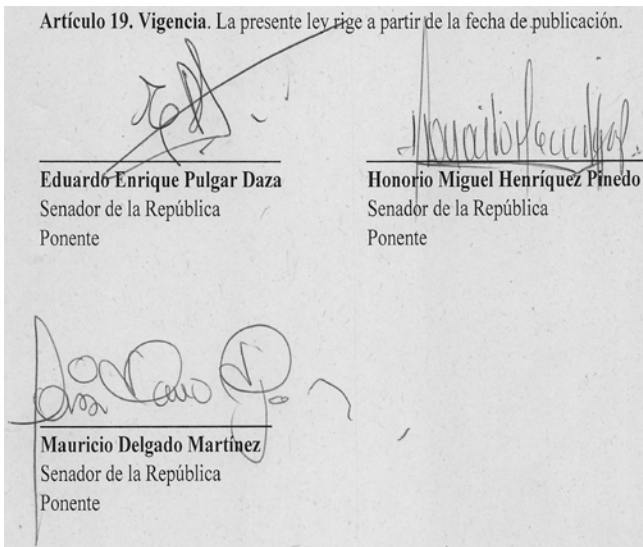 Artículo 19. Vigencia. La presente ley rige a partir de la fecha de publicación.
Eduardo Enrique Pulgar Daza
Senador de la República
Ponente
Honorio Miguel Henríquez Pinedo
Senador de la República
Ponente
Mauricio Delgado Martínez
Senador de la República
Ponente